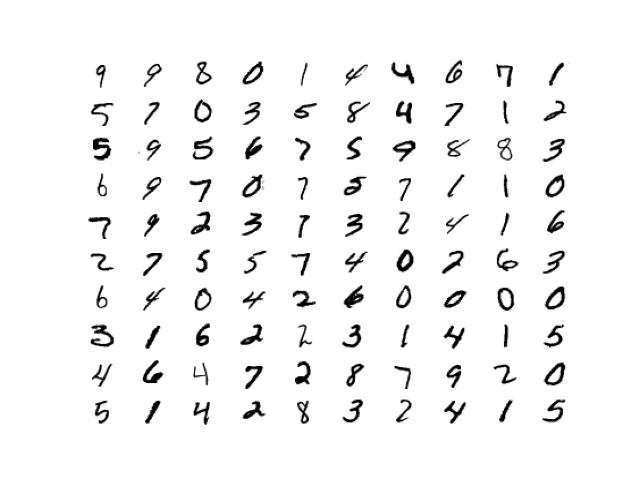 9 9 8 0 1 4 4 6 7 1
5 7 0 3 5 8 4 7 1 2
5 9 5 6 7 5 9 8 8 3
6 9 7 0 7 5 7 1 1 0
7 9 2 3 7 3 2 4 1 6
2 7 5 5 7 4 0 2 6 3
6 4 0 4 2 6 0 0 0 0
3 1 6 2 2 3 1 4 1 5
4 6 4 7 2 8 7 9 2 0
5 1 4 2 8 3 2 4 1 5